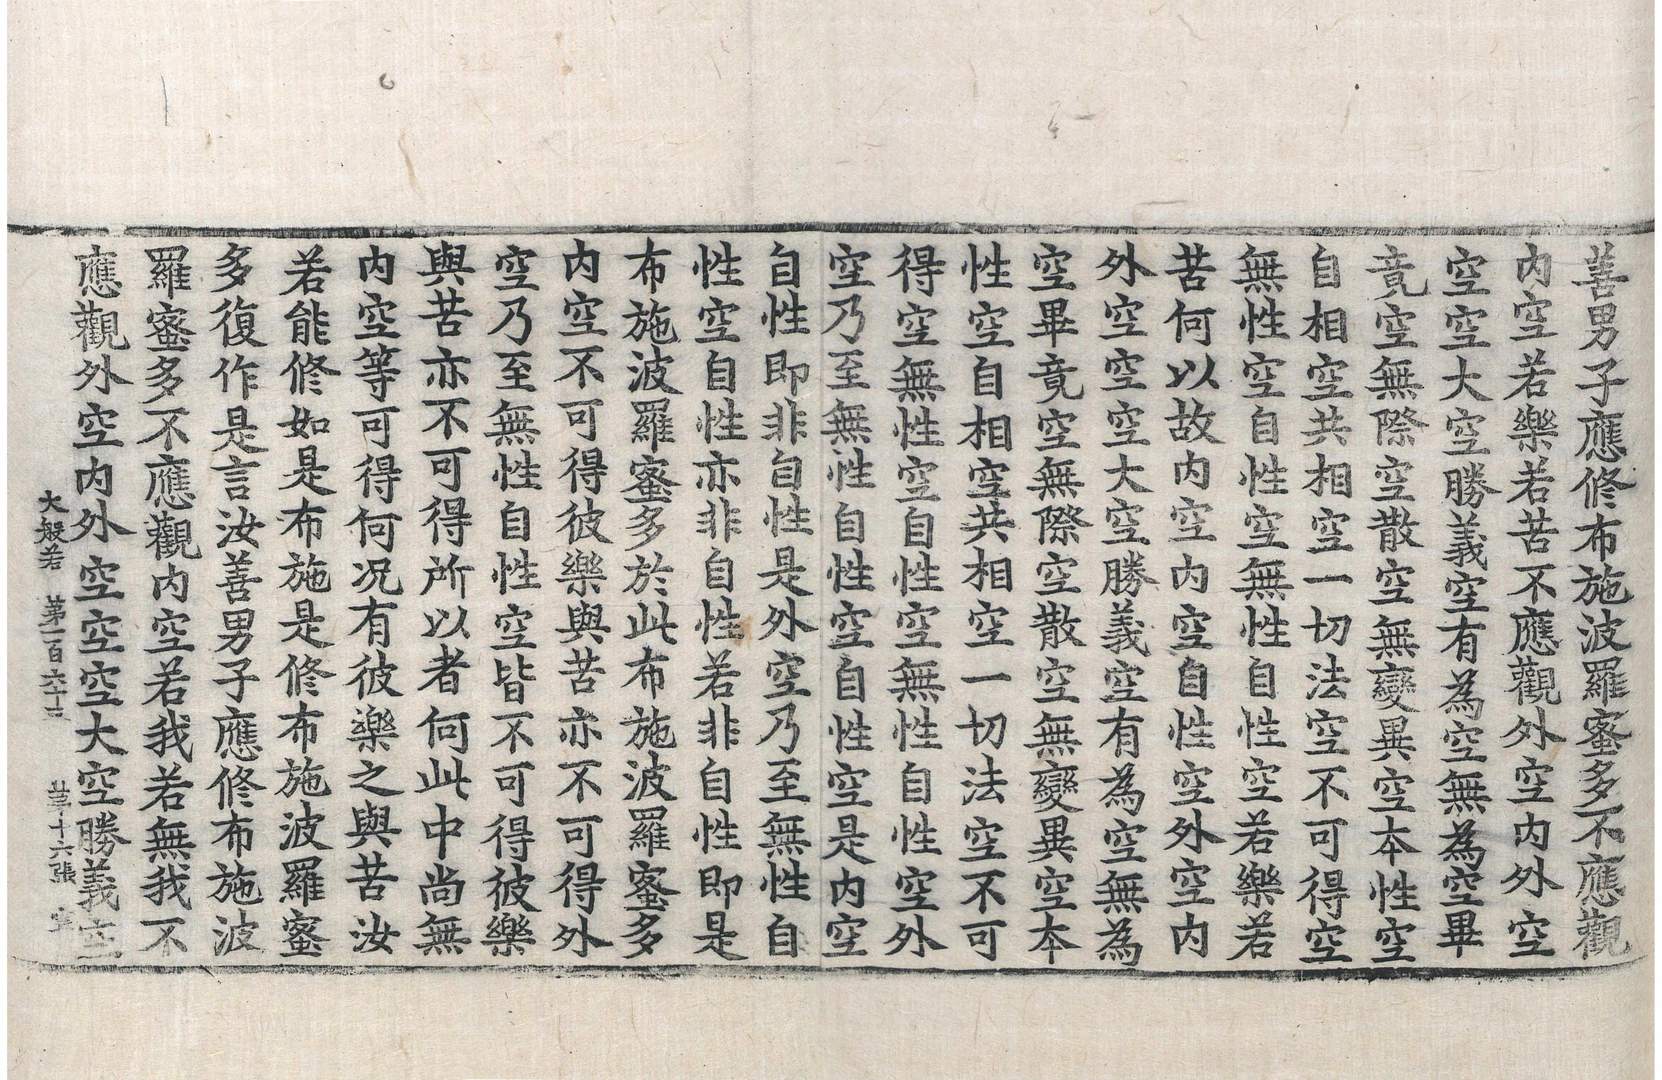 善男子應修布施波羅蜜多不應觀
内空若樂若苦不應觀外空内外空
空空大空勝義空有為空無為空畢
竟空無際空散空無變異空本性空
自相空共相空一切法空不可得空
無性空自性空無性自性空若樂若
苦何以故内空内空自性空外空内
外空空空大空勝義空有為空無為
空畢竟空無際空散空無變異空本
性空自相空共相空一切法空不可
得空無性空自性空無性自性空外
空乃至無性自性空自性空是内空
自性即非自性是外空乃至無性自
性空自性亦非自性若非自性即是
布施波羅蜜多於此布施波羅蜜多
内空不可得彼樂與苦亦不可得外
空乃至無性自性空皆不可得彼樂
與苦亦不可得所以者何此中尚無
内空等可得何况有彼樂之與苦汝
若能修如是布施是修布施波羅蜜
多復作是言汝善男子應修布施波
羅蜜多不應觀内空若我若無我不
應觀外空内外空空空大空勝義空
大般若 第一百六十三 第十六張